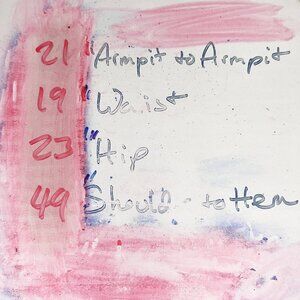 21" Armpit to Armpit
19" Waist
23" Hip
49" Should - to Hem